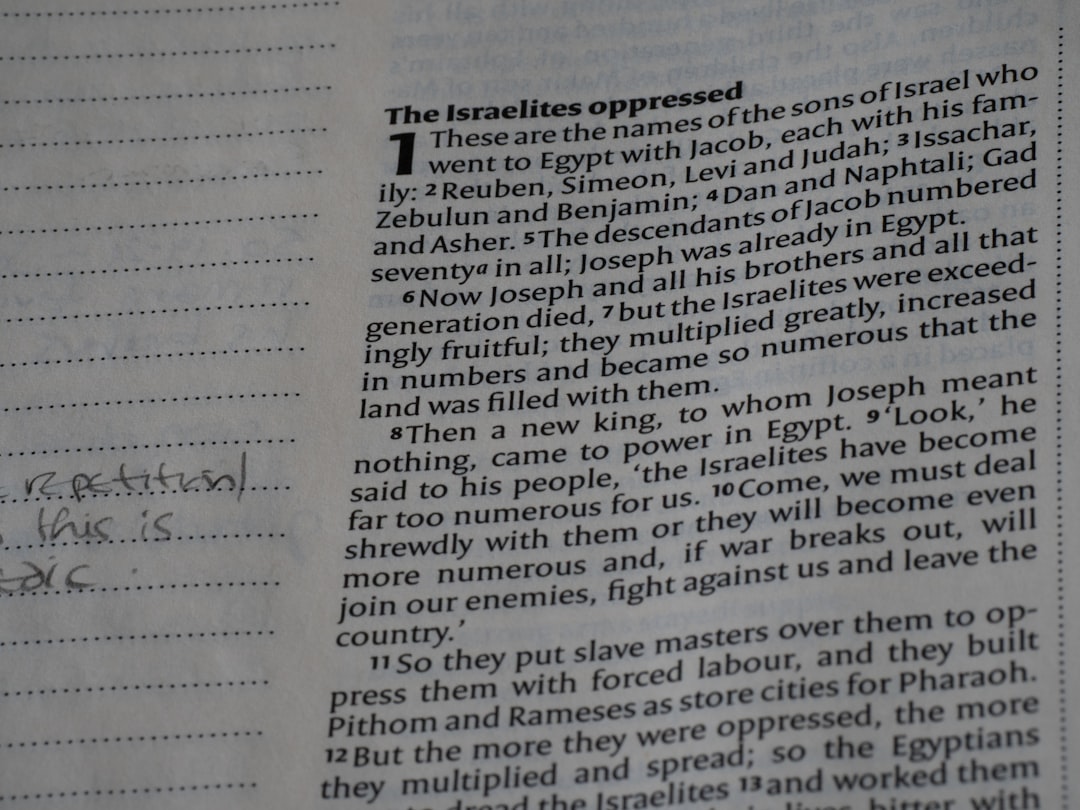 The Israelites oppressed
1 These are the names of the sons of Israel who
went to Egypt with Jacob, each with his fam-
ily: 2 Reuben, Simeon, Levi and Judah; 3 Issachar,
Zebulun and Benjamin; 4 Dan and Naphtali; Gad
and Asher. 5 The descendants of Jacob numbered
seventya in all; Joseph was already in Egypt.
6 Now Joseph and all his brothers and all that
generation died, 7 but the Israelites were exceed-
ingly fruitful; they multiplied greatly, increased
in numbers and became so numerous that the
land was filled with them.
8 Then a new king, to whom Joseph meant
nothing, came to power in Egypt. 9 ‘Look,’ he
said to his people, ‘the Israelites have become
far too numerous for us. 10 Come, we must deal
shrewdly with them or they will become even
more numerous and, if war breaks out, will
join our enemies, fight against us and leave the
country.’
11 So they put slave masters over them to op-
press them with forced labour, and they built
Pithom and Rameses as store cities for Pharaoh.
12 But the more they were oppressed, the more
they multiplied and spread; so the Egyptians
dread the Israelites 13 and worked them
bitter with
repetition
this is